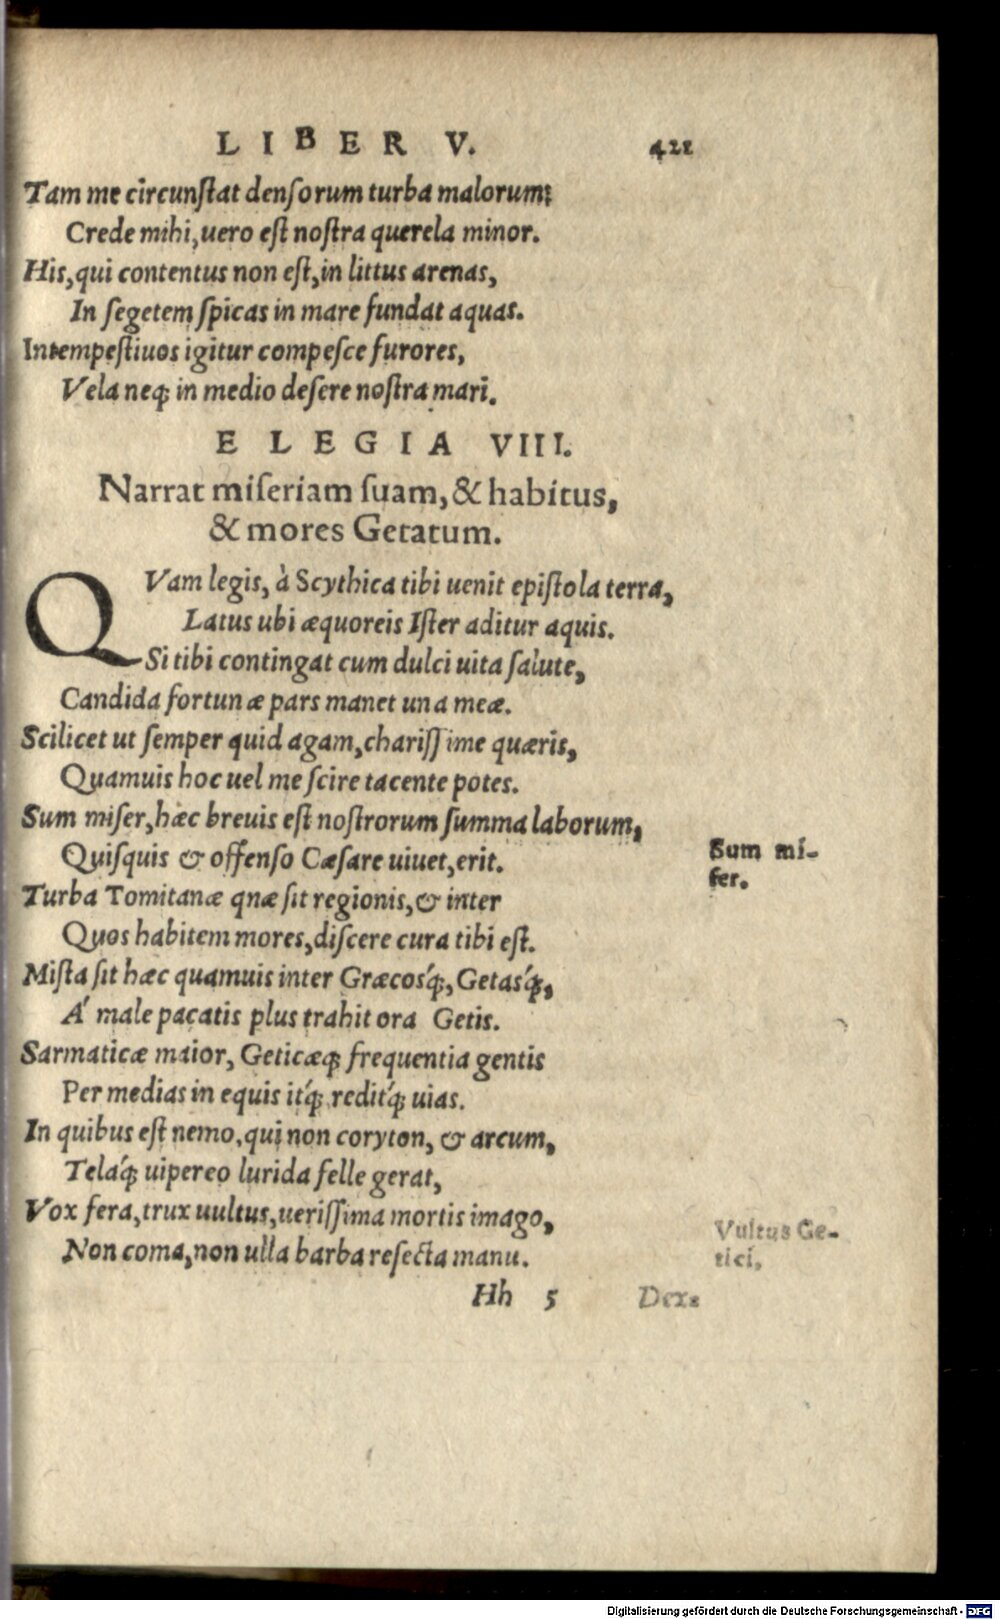 LIBER V. 421
Tam me circunſtat denſorum turba malorum:
Crede mihi, uero eſt noſtra querela minor.
His, qui contentus non eſt, in littus arenas,
In ſegetem ſpicas in mare fundat aquas.
Intempeſtiuos igitur compeſce furores,
Vela neq; in medio deſere noſtra mari.
ELEGIA VIII.
Narrat miſeriam ſuam, & habitus,
& mores Getatum.
QVam legis, à Scythica tibi uenit epiſtola terra,
Latus ubi æquoreis Iſter aditur aquis.
Si tibi contingat cum dulci uita ſalute,
Candida fortunæ pars manet una meæ.
Scilicet ut ſemper quid agam, chariſſime quæris,
Quamuis hoc uel me ſcire tacente potes.
Sum miſer, hæc breuis eſt noſtrorum ſumma laborum,
Quiſquis & offenſo Cæſare uiuet, erit.
Sum mi-
ſer.
Turba Tomitanæ qnæ ſit regionis, & inter
Quos habitem mores, diſcere cura tibi eſt.
Miſta ſit hæc quamuis inter Græcosq́;, Getasq́;,
A' male pacatis plus trahit ora Getis.
Sarmaticæ maior, Geticæq; frequentia gentis
Per medias in equis itq́; reditq́; uias.
In quibus eſt nemo, qui non coryton, & arcum,
Telaq́; uipereo lurida felle gerat,
Vox fera, trux uultus, ueriſſima mortis imago,
Non coma, non ulla barba reſecta manu.
Vultus Ge-
tici.
Hh 5 Dex-
Digitalisierung gefördert durch die Deutsche Forschungsgemeinschaft - DFG